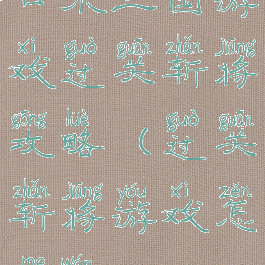 国游
xì guò guān zhǎn jiàng
戏过关斩将
gōng lüè guò guān
攻略（过关
zhǎn jiàng yóu xì zěn
斩将游戏怎
me wán